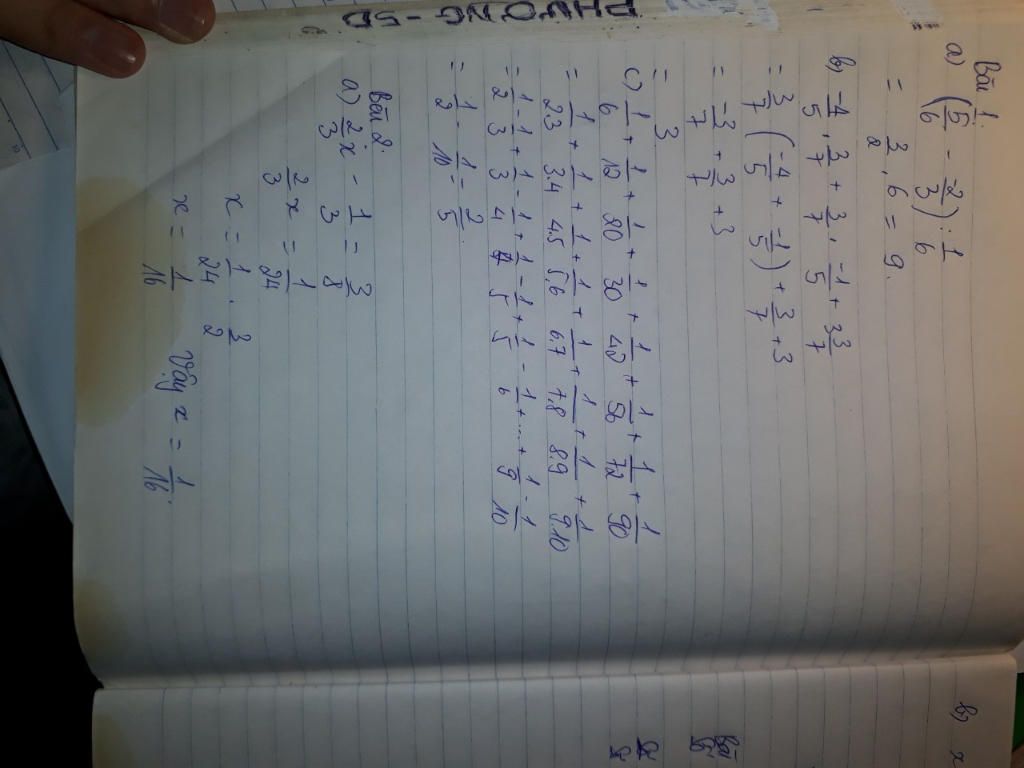 Bài 1.
a) (5/6 - -2/3) : 1/6
= 3/2 . 6 = 9.
b) -4/5 . 3/7 + 3/7 . -1/5 + 3 3/7
= 3/7 (-4/5 + -1/5) + 3/7 + 3
= -3/7 + 3/7 + 3
= 3
c) 1/6 + 1/12 + 1/20 + 1/30 + 1/42 + 1/56 + 1/72 + 1/90
= 1/2.3 + 1/3.4 + 1/4.5 + 1/5.6 + 1/6.7 + 1/7.8 + 1/8.9 + 1/9.10
= 1/2 - 1/3 + 1/3 - 1/4 + 1/4 - 1/5 + 1/5 - 1/6 + ... + 1/9 - 1/10
= 1/2 - 1/10 = 2/5.
Bài 2.
a) 2/3 x - 1/3 = 3/8
2/3 x = 1/24
x = 1/24 . 3/2
x = 1/16 Vậy x = 1/16.
b) x